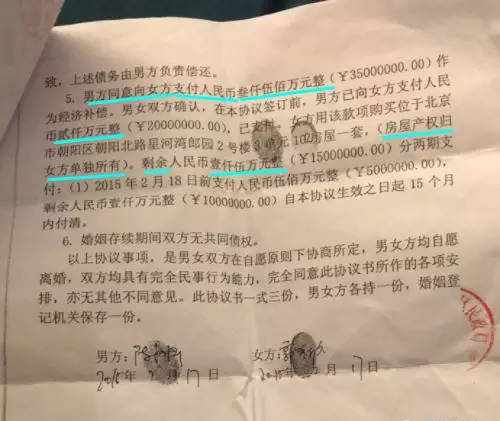 致，上述债务由男方负责偿还。
5. 男方同意向女方支付人民币叁仟伍佰万元整（￥35000000.00）作
为经济补偿。男女双方确认，在本协议签订前，男方已向女方支付人民
币贰仟万元整（￥20000000.00），已支付，女方用该款项购买位于北京
市朝阳区朝阳北路星河湾郎园2号楼3单元102房屋一套，（房屋产权归
女方单独所有）。剩余人民币壹仟伍万元整（￥15000000.00）分两期支
付：(1) 2015年2月18日前支付人民币伍佰万元整（￥5000000.00），
剩余人民币壹仟万元整（￥10000000.00）自本协议生效之日起15个月
内付清。
6. 婚姻存续期间双方无共同债权。
以上协议事项，是男女双方在自愿原则下协商所定，男女方均自愿
离婚，双方均具有完全民事行为能力，完全同意此协议书所作的各项安
排，亦无其他不同意见。此协议书一式三份，男女方各持一份，婚姻登
记机关保存一份。
男方： 女方：
2015年 月17日 2015年2月17日